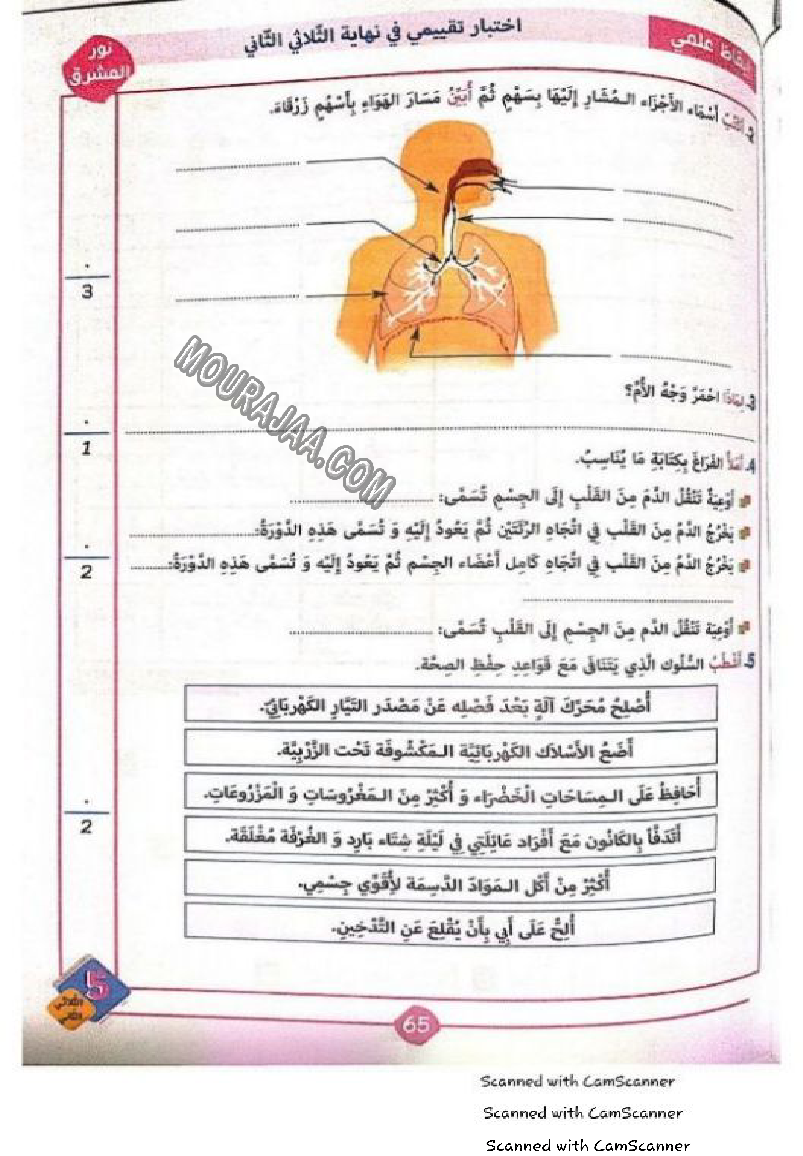 إيقاظ علمي
اختبار تقييمي في نهاية الثّلاثي الثّاني
نور
المشرق
2. أكْتُبُ أسْمَاء الأجْزَاء الـمُشَارِ إلَيْهَا بِسَهْمٍ ثُمَّ أُبَيِّنُ مَسَارَ الهَوَاءِ بِأَسْهُمٍ زَرْقَاءَ.
3
3. لِمَاذَا احْمَرَّ وَجْهُ الأُمِّ؟
1
4. أمْلَأُ الفَرَاغَ بِكِتَابَةِ مَا يُنَاسِبُ.
أَوْعِيَةٌ تَنْقُلُ الدَّمَ مِنَ القَلْبِ إِلَى الجِسْمِ تُسَمَّى: ....................
يَخْرُجُ الدَّمُ مِنَ القَلْب فِي اتِّجَاهِ الرِّئَتَيْنِ ثُمَّ يَعُودُ إِلَيْهِ وَ تُسَمَّى هَذِهِ الدَّوْرَةُ: ....................
2
يَخْرُجُ الدَّمُ مِنَ القَلْب فِي اتِّجَاهِ كَامِلِ أَعْضَاء الجِسْم ثُمَّ يَعُودُ إِلَيْه وَ تُسَمَّى هَذِهِ الدَّوْرَةُ: ..........
أَوْعِيَة تَنْقُلُ الدَّم مِنَ الجِسْمِ إِلَى القَلْبِ تُسَمَّى: ....................
5. أَشْطُبُ السُّلُوك الَّذِي يَتَنَافَى مَعَ قَوَاعِدِ حِفْظِ الصِحَّة.
أُصْلِحُ مُحَرِّكَ آلَةٍ بَعْدَ فَصْلِه عَنْ مَصْدَر التَيَّارِ الكَهْرِبَائِيِّ.
أَضَعُ الأَسْلاَكَ الكَهْرِبَائِيَّة الـمَكْشُوفَة تَحْت الزَّرْبِيَّة.
أُحَافِظُ عَلَى الـمِسَاحَاتِ الْخَضْرَاء وَ أُكْثِرُ مِنَ الـمَغْرُوسَاتِ وَ الْمَزْرُوعَاتِ.
2
أَتَدَفَّأُ بِالكَانُون مَعَ أَفْرَاد عَائِلَتِي فِي لَيْلَةِ شِتَاء بَارِد وَ الغُرْفَة مُغْلَقَة.
أُكْثِرُ مِنْ أَكْل الـمَوَادّ الدَّسِمَة لأُقَوِّي جِسْمِي.
أُلِحُّ عَلَى أَبِي بِأَنْ يُقْلِعَ عَنِ التَّدْخِينِ.
5
الثلاثي
الثاني
65
MOURAJAA.COM
Scanned with CamScanner
Scanned with CamScanner
Scanned with CamScanner